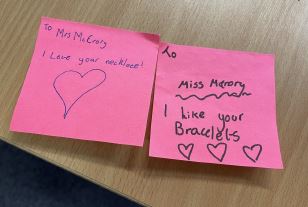 To Mrs McErory
I Love your necklace!
To
Miss Merory
I Like your
Bracelets